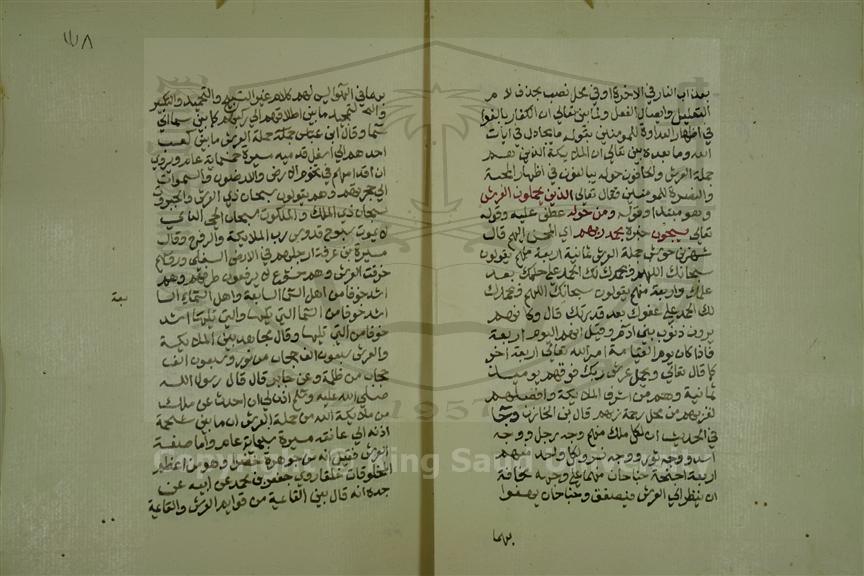 بعذاب النار في الآخرة او في محل نصب بحذف لام
التعليل وايصال الفعل ولما بين تعالي ان الكفار بالغوا
في اظهار العداوة للمومنين بقوله ما يجادل في ايات
الله وما بعده بين تعالي ان الملايكة الذين هم
حملة العرش والحافون حوله يبالغون في اظهار المحبة
والنصرة للمومنين فقال تعالي الذين يحملون العرش
وهو مبتدا وقوله ومن حوله عطف عليه وقوله
تعالي يسبحون خبره بحمد ربهم اي المحسن اليهم قال
شهر بن حوشب حملة العرش ثمانية اربعة منهم يقولون
سبحانك اللهم وبحمدك لك الحمد علي حلمك بعد
علمك واربعة منهم يقولون سبحانك اللهم وبحمدك
لك الحمد علي عفوك بعد قدرتك قال وكانهم
يرون ذنوب بني ادم وقيل انهم اليوم اربعة
فاذا كان يوم القيامة امر الله تعالي اربعة اخر
كما قال تعالي ويحمل عرش ربك فوقهم يوميذ
ثمانية وهم من اشرف الملايكة وافضلهم
لقربهم من محل رحمة ربهم قال بن الخازن وجا
في الحديث ان لكل ملك منهم وجه رجل ووجه
اسد ووجه ثور ووجه نسر ولكل واحد منهم
اربعة اجنحة جناحان منها علي وجهه مخافة
ان ينظر الي العرش فيصعق وجناحان يهفوا
بهما
١١٨
بهما في الهوا ليس لهم كلام غير التسبيح والتحميد والتكبير
والتمجيد ما بين اطلافهم الي ركبهم كما بين سما الي
سما وقال ابن عباس حملة العرش ما بين كعب
احدهم الي اسفل قدميه مسيرة خمسماية عام وروي
ان اقدامهم في تخوم الارض والارضون والسموات
الي حجزهم وهم يقولون سبحان ذي العز والجبروت
سبحان ذي الملك والملكوت سبحان الحي الذي
لا يموت سبوح قدوس رب الملايكة والروح وقال
ميسرة بن عرفة ارجلهم في الارض السفلي وروسهم
خرقت العرش وهم خشوع لا يرفعون طرفهم وهم
اشد خوفا من اهل السما السابعة واهل السما السا
بعة
اشد خوفا من السما التي تليها والتي تليها اشد
خوفا من التي تليها وقال مجاهد بين الملايكة
والعرش سبعون الف حجاب من نور وسبعون الف
حجاب من ظلمة وعن جابر قال قال رسول الله
صلي الله عليه وسلم اذن لي ان احدث عن ملك
من ملايكة الله من حملة العرش ان ما بين شحمة
اذنه الي عاتقه مسيرة سبعماية عام واما صفة
العرش فقيل انه من جوهرة خضرا وهو من اعظم
المخلوقات خلقا روي جعفر بن محمد عن ابيه عن
جده انه قال بين القاعية من قوايم العرش والقاعية
Copyright © King Saud University
1957